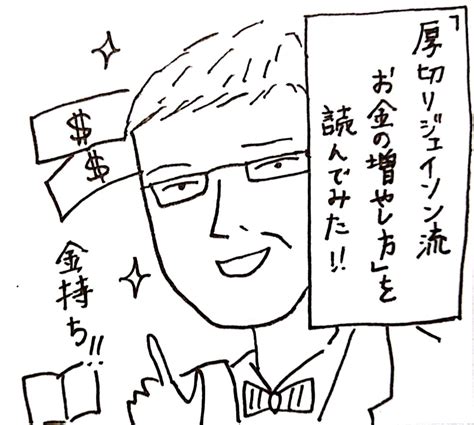 「厚切りジェイソン流
お金の増やし方」を
読んでみた!!
$
$
金持ち!!